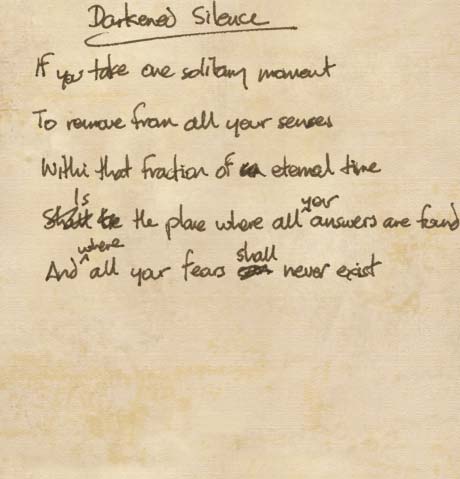 Darkened Silence
If you take one solitary moment
To remove from all your senses
Withi that fraction of eternal time
Is the place where all your answers are found
And where all your fears shall never exist